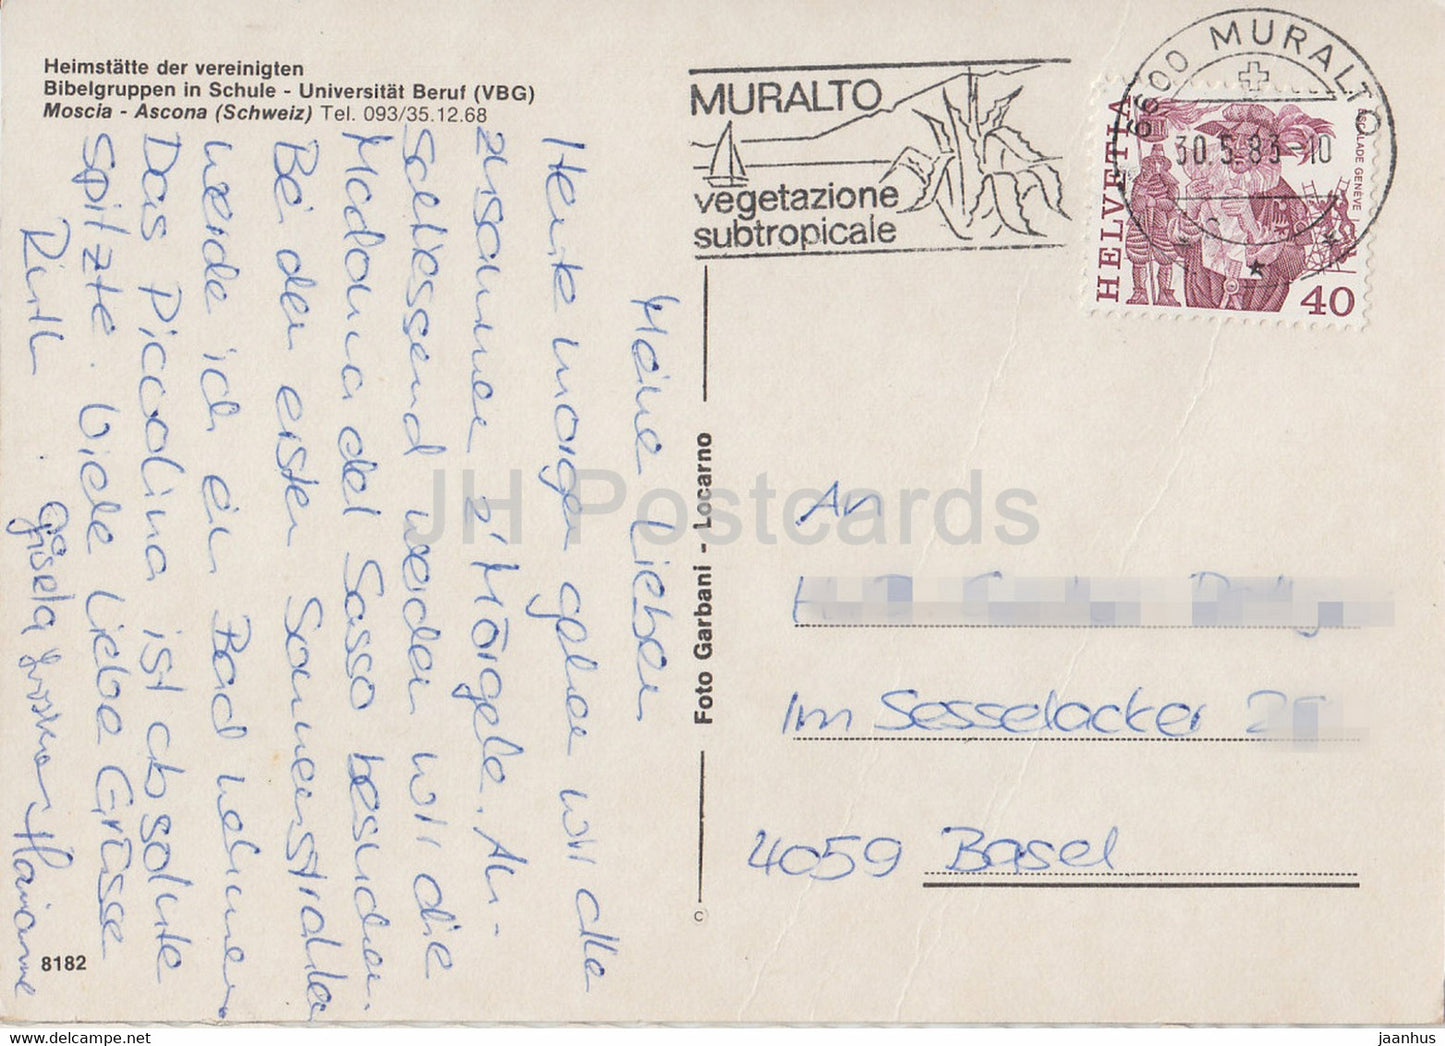 Heimstätte der vereinigten
Bibelgruppen in Schule - Universität Beruf (VBG)
Moscia - Ascona (Schweiz) Tel. 093/35.12.68
MURALTO
vegetazione
subtropicale
6600 MURALTO
30.5.83-10
HELVETIA
ESCALADE GENÈVE
40
Meine Lieben
Heute morgen gehen wir alle
zusammen z'Mörgele. An-
schliessend werden wir die
Madonna del Sasso besuchen.
Bei den ersten Sonnenstrahlen
werde ich ein Bad nehmen.
Das Piccolina ist absolute
Spitzte. Viele Liebe Grüsse
Ruth. Gisela Marianne
8182
Foto Garbani - Locarno
C
An
Im Sesselacker
4059 Basel
JH Postcards
www.delcampe.net
jaanhus